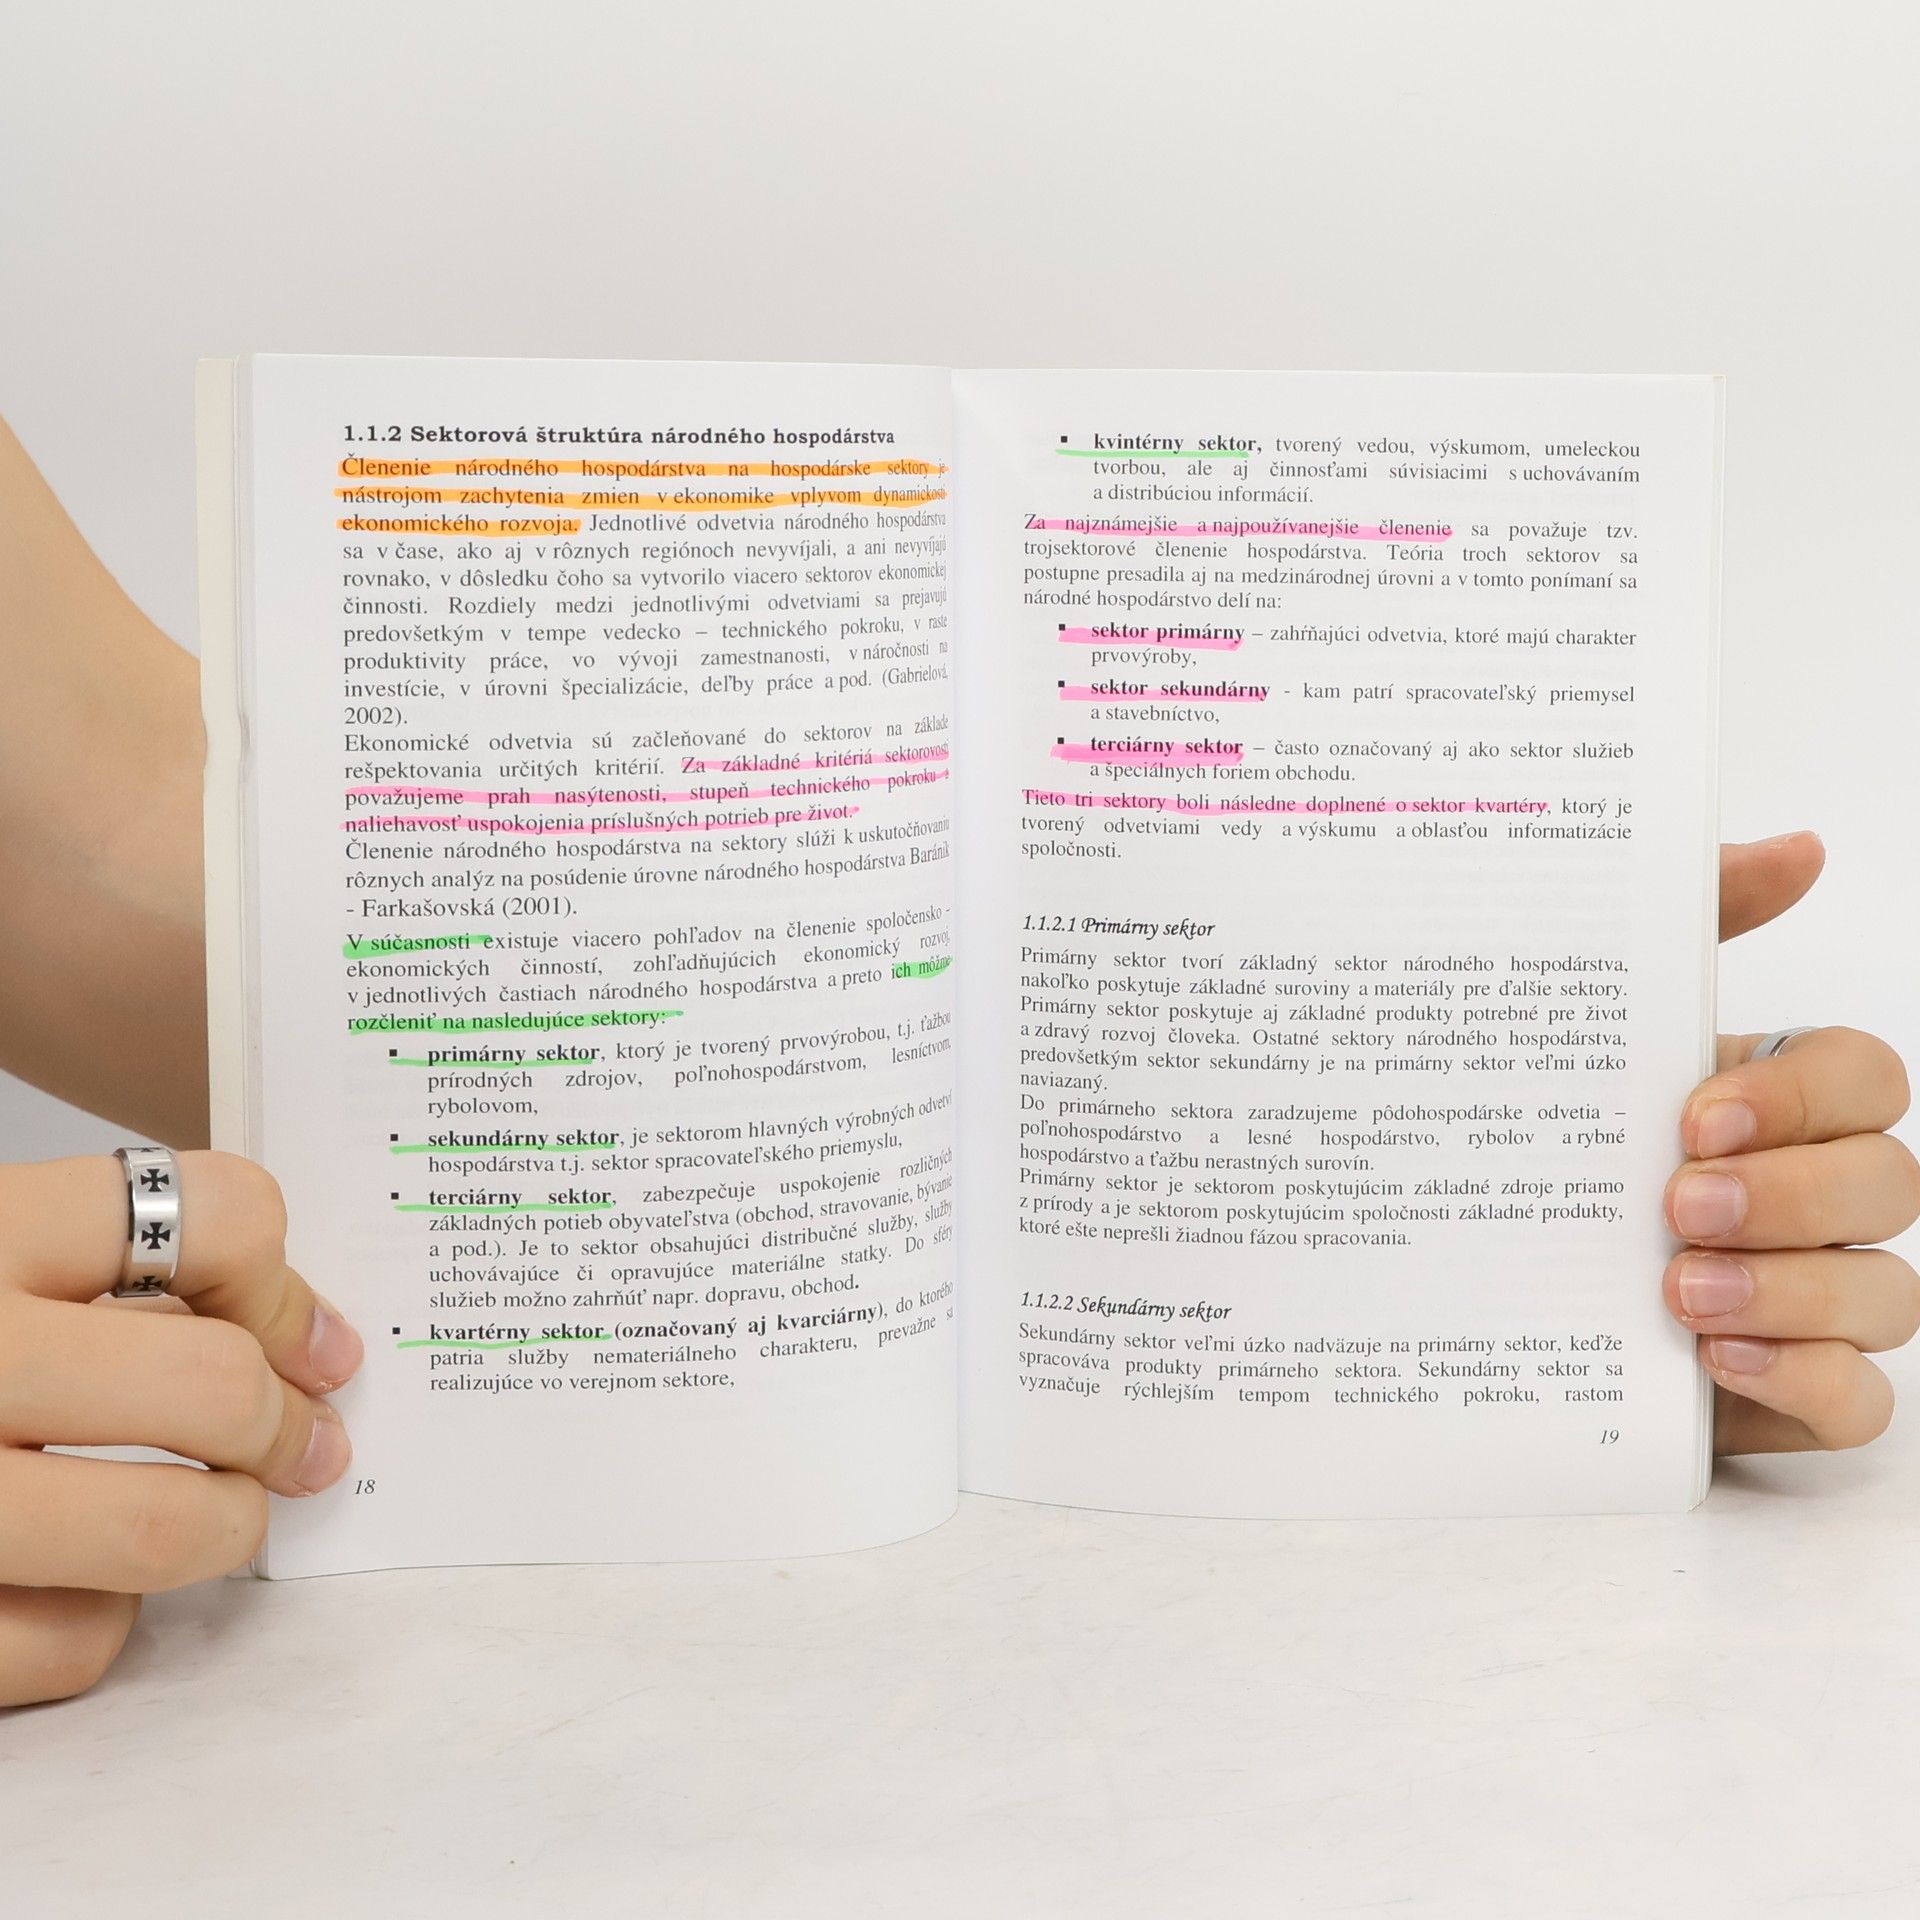 1.1.2 Sektorová štruktúra národného hospodárstva
Členenie národného hospodárstva na hospodárske sektory je
nástrojom zachytenia zmien v ekonomike vplyvom dynamickosti
ekonomického rozvoja. Jednotlivé odvetvia národného hospodárstva
sa v čase, ako aj v rôznych regiónoch nevyvíjali, a ani nevyvíjajú
rovnako, v dôsledku čoho sa vytvorilo viacero sektorov ekonomickej
činnosti. Rozdiely medzi jednotlivými odvetviami sa prejavujú
predovšetkým v tempe vedecko – technického pokroku, v raste
produktivity práce, vo vývoji zamestnanosti, v náročnosti na
investície, v úrovni špecializácie, deľby práce a pod. (Gabrielová,
2002).
Ekonomické odvetvia sú začleňované do sektorov na základe
rešpektovania určitých kritérií. Za základné kritériá sektorovosti
považujeme prah nasýtenosti, stupeň technického pokroku a
naliehavosť uspokojenia príslušných potrieb pre život.
Členenie národného hospodárstva na sektory slúži k uskutočňovaniu
rôznych analýz na posúdenie úrovne národného hospodárstva Baránik
- Farkašovská (2001).
V súčasnosti existuje viacero pohľadov na členenie spoločensko -
ekonomických činností, zohľadňujúcich ekonomický rozvoj,
v jednotlivých častiach národného hospodárstva a preto ich môžme
rozčleniť na nasledujúce sektory:
▪ primárny sektor, ktorý je tvorený prvovýrobou, t.j. ťažbou
prírodných zdrojov, poľnohospodárstvom, lesníctvom,
rybolovom,
▪ sekundárny sektor, je sektorom hlavných výrobných odvetví
hospodárstva t.j. sektor spracovateľského priemyslu,
▪ terciárny sektor, zabezpečuje uspokojenie rozličných
základných potieb obyvateľstva (obchod, stravovanie, bývanie
a pod.). Je to sektor obsahujúci distribučné služby, služby
uchovávajúce či opravujúce materiálne statky. Do sféry
služieb možno zahrňúť napr. dopravu, obchod.
▪ kvartérny sektor (označovaný aj kvarciárny), do ktorého
patria služby nemateriálneho charakteru, prevažne sa
realizujúce vo verejnom sektore,
18
▪ kvintérny sektor, tvorený vedou, výskumom, umeleckou
tvorbou, ale aj činnosťami súvisiacimi s uchovávaním
a distribúciou informácií.
Za najznámejšie a najpoužívanejšie členenie sa považuje tzv.
trojsektorové členenie hospodárstva. Teória troch sektorov sa
postupne presadila aj na medzinárodnej úrovni a v tomto ponímaní sa
národné hospodárstvo delí na:
▪ sektor primárny – zahŕňajúci odvetvia, ktoré majú charakter
prvovýroby,
▪ sektor sekundárny - kam patrí spracovateľský priemysel
a stavebníctvo,
▪ terciárny sektor – často označovaný aj ako sektor služieb
a špeciálnych foriem obchodu.
Tieto tri sektory boli následne doplnené o sektor kvartéry, ktorý je
tvorený odvetviami vedy a výskumu a oblasťou informatizácie
spoločnosti.
1.1.2.1 Primárny sektor
Primárny sektor tvorí základný sektor národného hospodárstva,
nakoľko poskytuje základné suroviny a materiály pre ďalšie sektory.
Primárny sektor poskytuje aj základné produkty potrebné pre život
a zdravý rozvoj človeka. Ostatné sektory národného hospodárstva,
predovšetkým sektor sekundárny je na primárny sektor veľmi úzko
naviazaný.
Do primárneho sektora zaradzujeme pôdohospodárske odvetia –
poľnohospodárstvo a lesné hospodárstvo, rybolov a rybné
hospodárstvo a ťažbu nerastných surovín.
Primárny sektor je sektorom poskytujúcim základné zdroje priamo
z prírody a je sektorom poskytujúcim spoločnosti základné produkty,
ktoré ešte neprešli žiadnou fázou spracovania.
1.1.2.2 Sekundárny sektor
Sekundárny sektor veľmi úzko nadväzuje na primárny sektor, keďže
spracováva produkty primárneho sektora. Sekundárny sektor sa
vyznačuje rýchlejším tempom technického pokroku, rastom
19